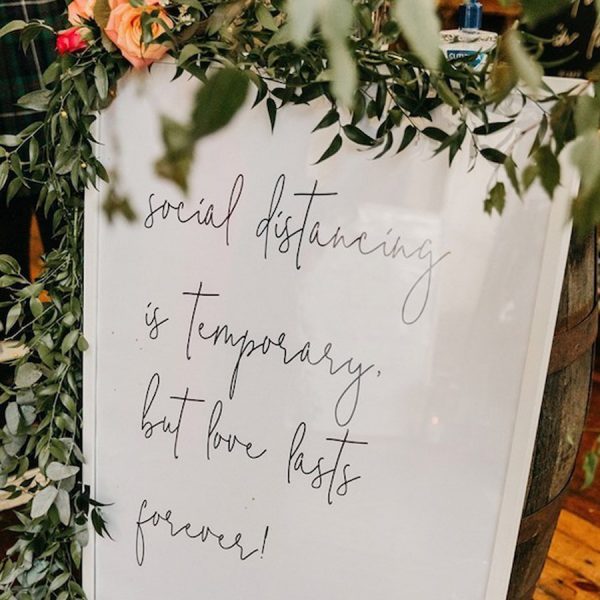 social distancing
is temporary,
but love lasts
forever!